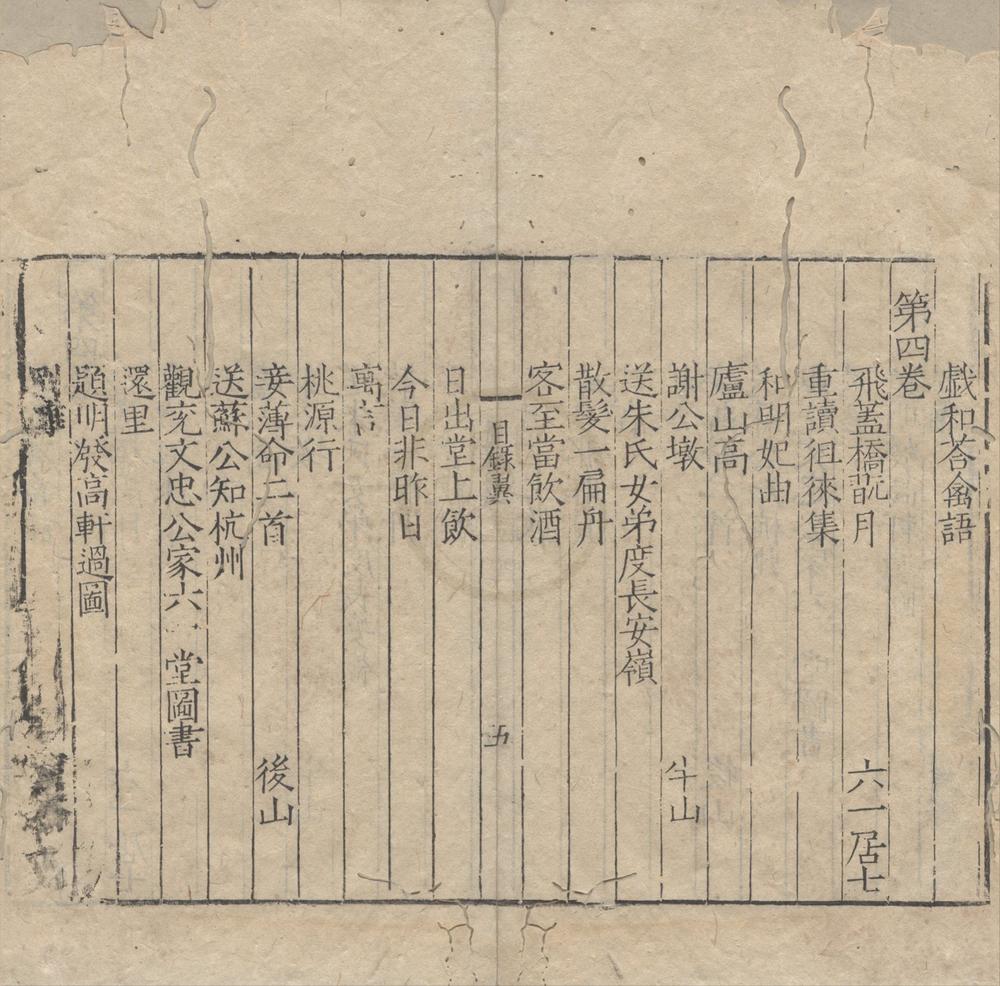 戲和荅禽語
第四卷
飛蓋橋翫月 六一居士
重讀徂徠集
和明妃曲
廬山高
謝公墩 半山
送朱氏女弟度長安嶺
散髮一扁舟
客至當飲酒
目錄 五
日出堂上飲
今日非昨日
寓言
桃源行
妾薄命二首 後山
送蘇公知杭州
觀兖文忠公家六一堂圖書
還里
題明發高軒過圖